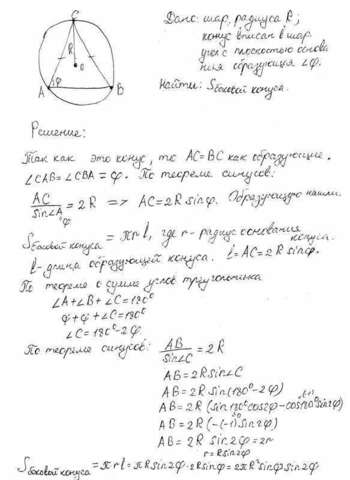 C
R
O
A
φ
B
Дано: шар, радиуса R;
конус вписан в шар
угол с плоскостью основа
ния образующая ∠φ.
Найти: Sбоковой конуса.
Решение:
Так как это конус, то AC=BC как образующие.
∠CAB=∠CBA=φ. По теореме синусов:
AC/sin∠A = 2R => AC=2R sinφ. Образующую нашли.
φ
Sбоковой конуса = πrl, где r - радиус основания
конуса.
l - длина образующей конуса. l=AC=2R sinφ.
По теореме о сумме углов треугольника
∠A+∠B+∠C=180°
φ+φ+∠C=180°
∠C=180°-2φ.
По теореме синусов: AB/sin∠C = 2R
AB=2R sin∠C
AB=2R sin(180°-2φ)
AB=2R (sin180°cos2φ-cos180°sin2φ)
AB=2R (-(-1)sin2φ)
AB=2R sin2φ=2r
r=R sin2φ
Sбоковой конуса=πrl=πR sin2φ·2R sinφ=2πR²sinφ sin2φ